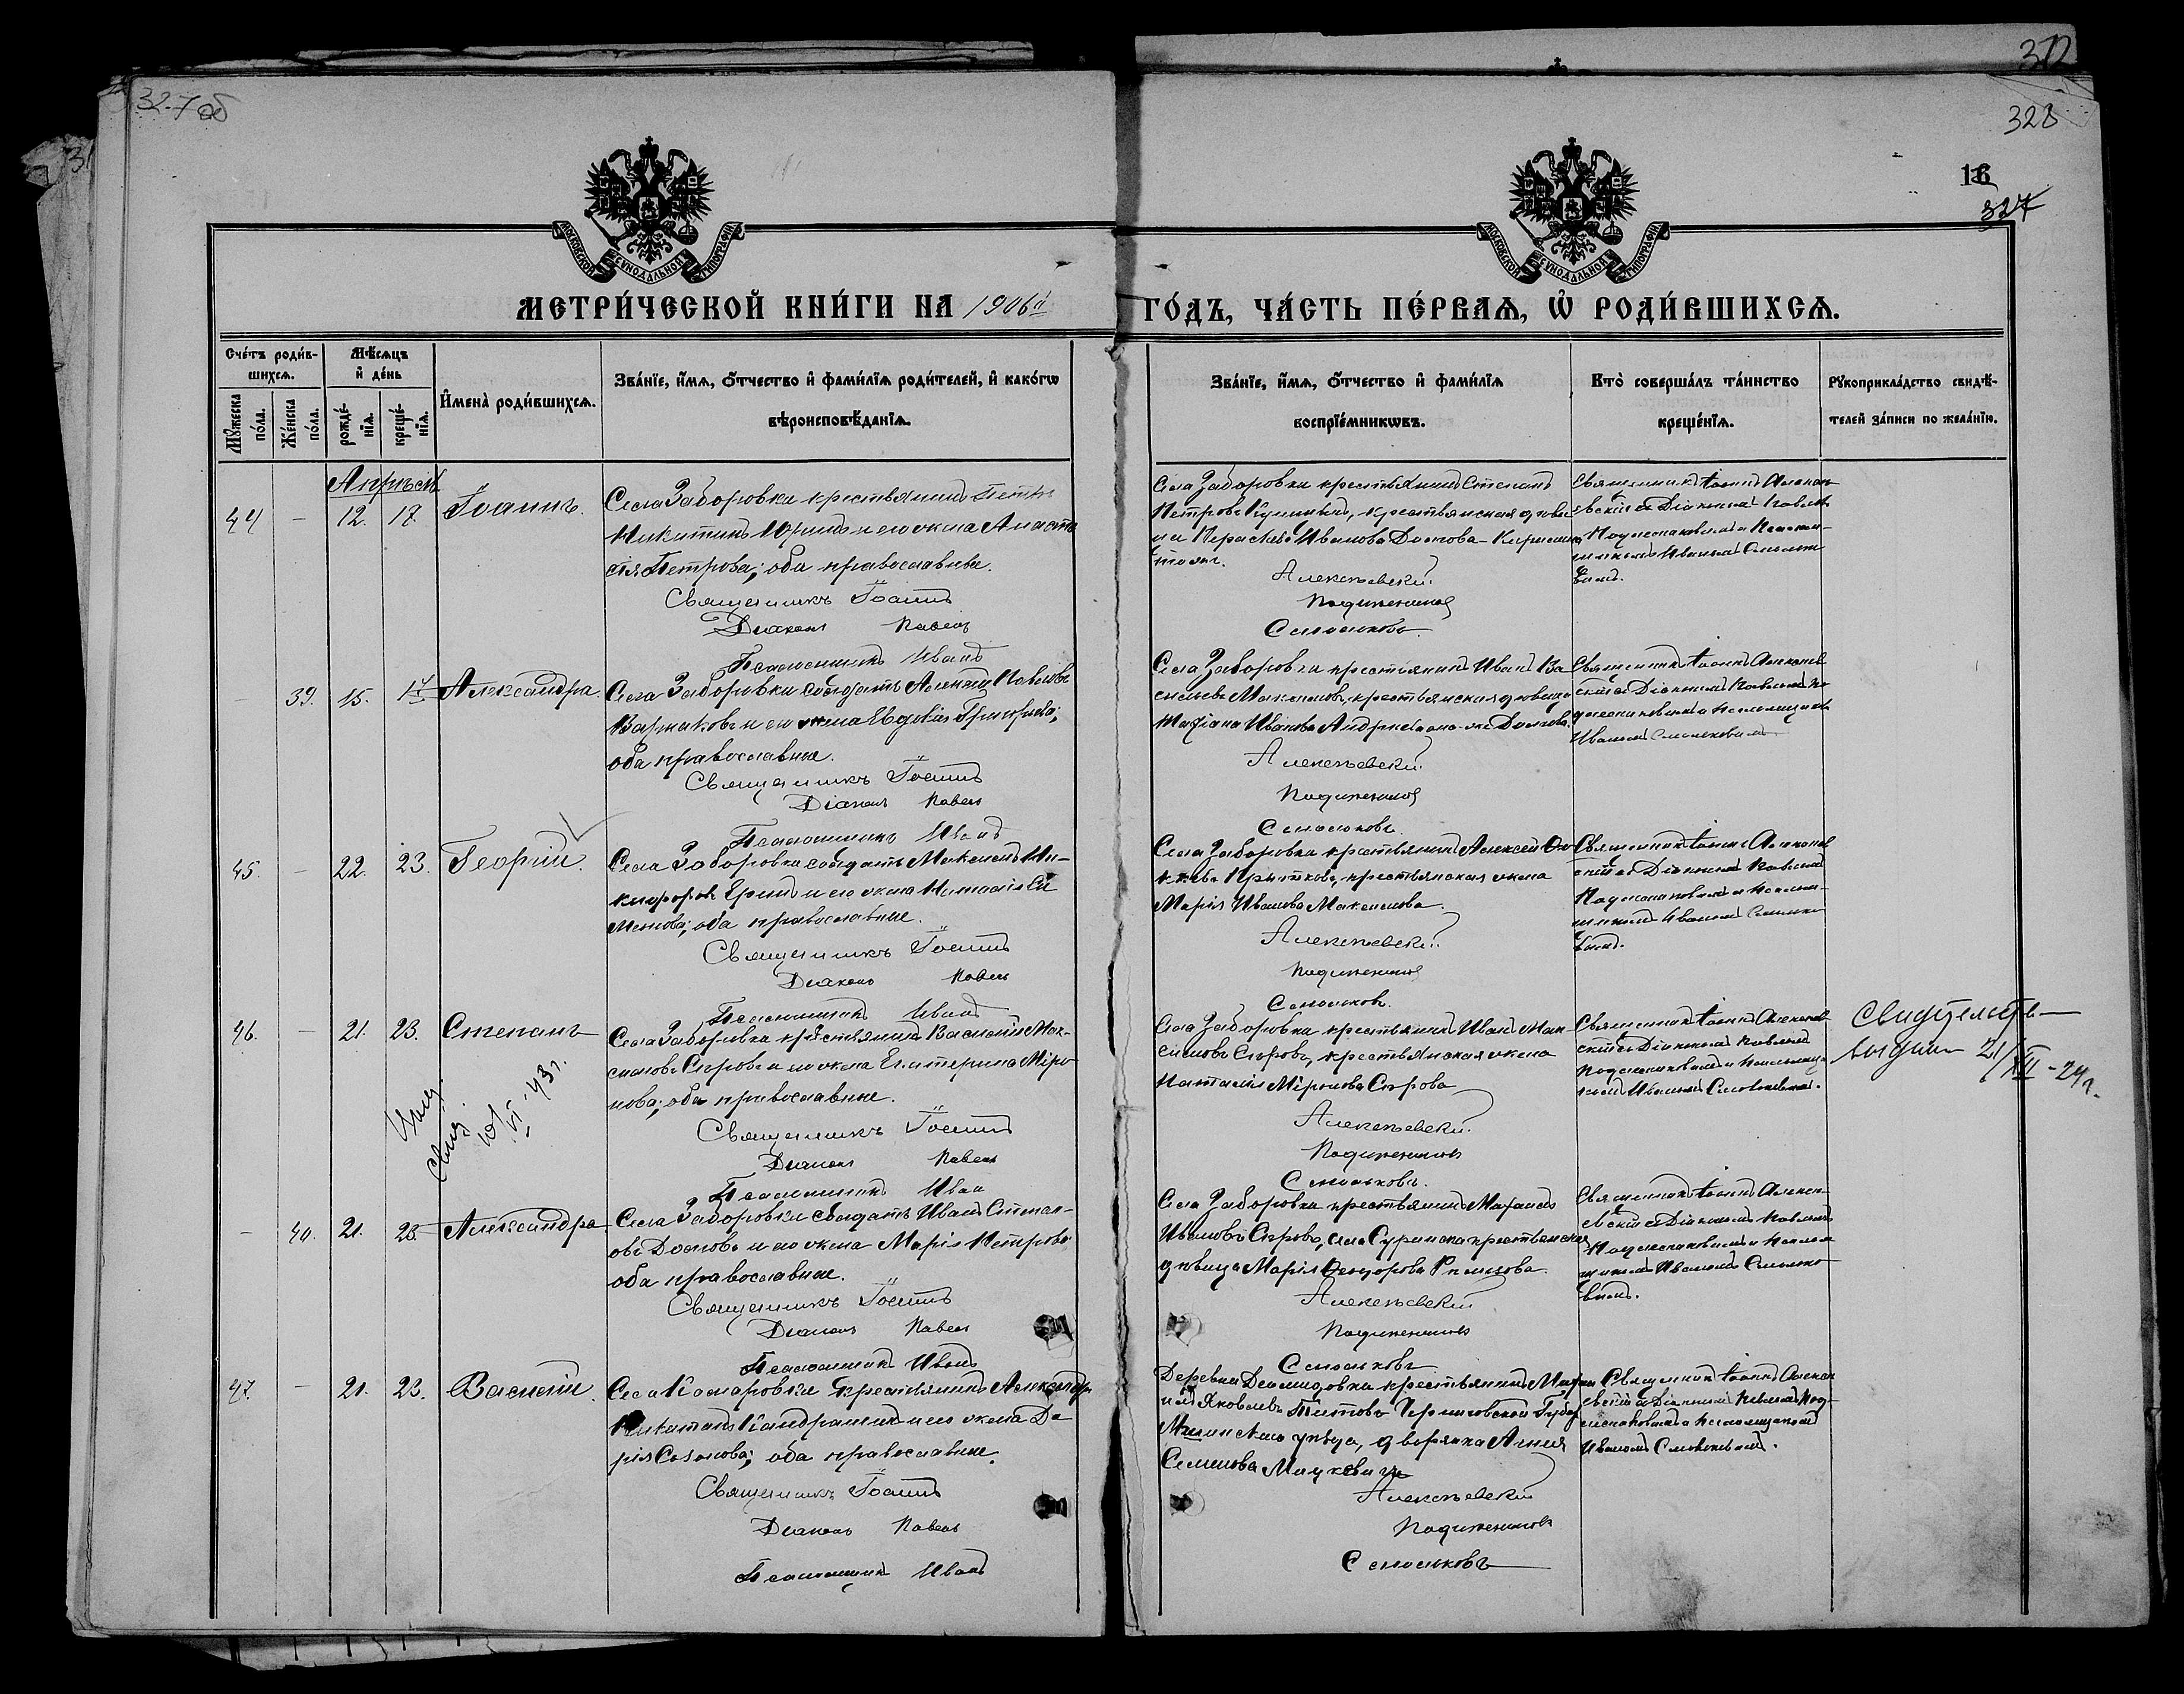 327 об
372
328
16
327
МОСКОВСКОЙ СѴНОДАЛЬНОЙ ТИПОГРАФІИ
МОСКОВСКОЙ СѴНОДАЛЬНОЙ ТИПОГРАФІИ
МЕТРИ́ЧЕСКОЙ КНИ́ГИ НА 1906й ГО́ДЪ, ЧА́СТЬ ПЕ́РВАѦ, Ѡ҆ РОДИ́ВШИХСѦ.
Сче́тъ роди́в-
шихсѧ.
Мѣ́сѧцъ
и҆ де́нь
Мꙋ́жеска по́ла.
Же́нска по́ла.
рожде́-нїѧ.
креще́-нїѧ.
И҆мена̀ роди́вшихсѧ.
Зва́нїе, и҆́мѧ, ѻ҆́тчество и҆ фами́лїѧ роди́телей, и҆ како́гѡ
вѣроисповѣ́данїѧ.
Зва́нїе, и҆́мѧ, ѻ҆́тчество и҆ фами́лїѧ
воспрїе́мникѡвъ.
Кто̀ соверша́лъ та́инство
креще́нїѧ.
Рꙋкоприкла́дство свидѣ́-
телей за́писи по жела́нїю.
Апрѣль
44 – 12. 17. Іоаннъ.
Села Заборовки крестьянинъ Петръ
Никитинъ и его жена Анаста
сія Петрова; оба православные.
Священникъ Іоаннъ
Діаконъ Павелъ
Псаломщикъ Иванъ
Села Заборовки крестьянинъ Степанъ
Петровъ крестьянская дѣви
ца Иванова
Алексѣевскій.
Смольковъ.
Священникъ Іоаннъ Алексѣ
евскій съ Діакономъ Павломъ
и Псалом-
щикомъ Иваномъ Смолько
вымъ.
– 39. 15. 17 Александра.
Села Заборовки солдатъ Алексѣй Павловъ
и его жена Евдокія Григорьева;
оба православные.
Священникъ Іоаннъ
Діаконъ Павелъ
Псаломщикъ Иванъ
Села Заборовки крестьянинъ Иванъ Ва
сильевъ Максимовъ, крестьянская дѣвица
Татіана Иванова
Алексѣевскій.
Смольковъ.
Священникъ Іоаннъ Алексѣев
скій съ Діакономъ Павломъ По
и Псаломщикомъ
Иваномъ Смольковымъ
45. – 22. 23. Георгій.
Села Заборовки солдатъ Максимъ Ни-
кифоровъ Еринъ и его жена Наталія Си
менова; оба православные.
Священникъ Іоаннъ
Діаконъ Павелъ
Псаломщикъ Иванъ
Села Заборовки крестьянинъ Алексѣй
крестьянская жена
Марія Иванова Максимова.
Алексѣевскій.
Смольковъ.
Священникъ Іоаннъ Алексѣев
скій съ Діакономъ Павломъ
и Псалом-
щикомъ Иваномъ Смолько
вымъ.
46. – 21. 23. Степанъ
Села Заборовки крестьянинъ Василій Мак-
симовъ Сѣровъ и его жена Екатерина Миро
нова; оба православные.
Священникъ Іоаннъ
Діаконъ Павелъ
Псаломщикъ Иванъ
Села Заборовки крестьянинъ Иванъ Мак-
симовъ Сѣровъ, крестьянская жена
Наталія Миронова Сѣрова
Алексѣевскій.
Смольковъ.
Священникъ Іоаннъ Алексѣев
скій съ Діакономъ Павломъ
и Псаломщи-
комъ Иваномъ Смольковымъ.
Свидѣтельство
выдано 21/XII-24г.
свид.
10/VI 43г.
– 40. 21. 23. Александра
Села Заборовки солдатъ Иванъ Степан-
овъ и его жена Марія Петрова
оба православные.
Священникъ Іоаннъ
Діаконъ Павелъ
Псаломщикъ Иванъ
Села Заборовки крестьянинъ
Ивановъ Сѣровъ, села крестьянская
дѣвица Марія
Алексѣевскій
Смольковъ
Священникъ Іоаннъ Алексѣ-
евскій съ Діакономъ Павломъ
и Псалом
щикомъ Иваномъ Смолько
вымъ.
47. – 21. 23. Василій.
Села Комаровки крестьянинъ Александръ
и его жена Да
рія оба православные.
Священникъ Іоаннъ
Діаконъ Павелъ
Псаломщикъ Иванъ
Деревни Демидовки крестьянинъ
Яковлевъ Титовъ Черниговской Губер.
уѣзда, дворянка
Семенова Мацкевичъ
Алексѣевскій
Смольковъ
Священникъ Іоаннъ Алексѣ
евскій съ Діакономъ Павломъ Под-
и Псаломщикомъ
Иваномъ Смольковымъ.